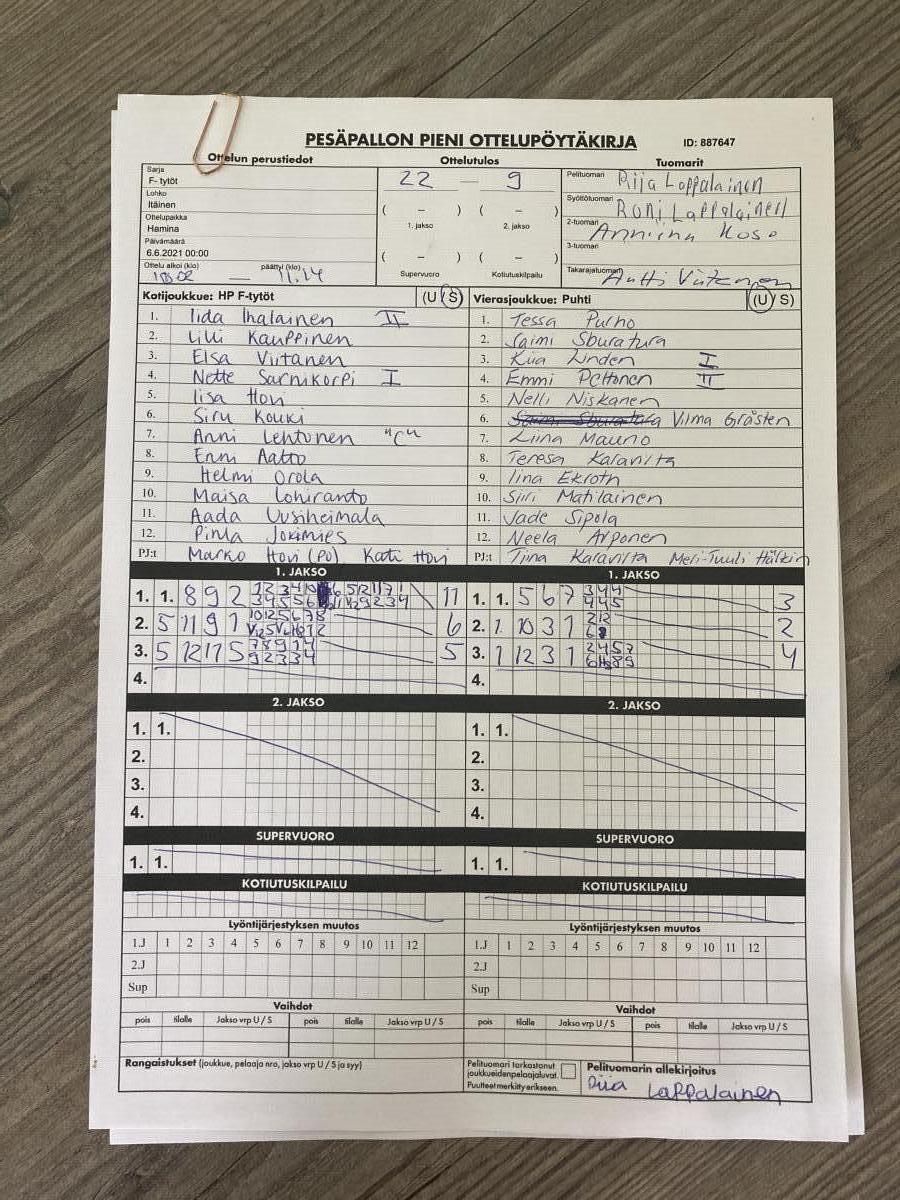 PESÄPALLON PIENI OTTELUPÖYTÄKIRJA ID: 887647
Ottelun perustiedot Ottelutulos Tuomarit
Sarja
F- tytöt
Lohko
Itäinen
Ottelupaikka
Hamina
Päivämäärä
6.6.2021 00:00
Ottelu alkoi (klo) — päättyi (klo) 11.14
22 — 9
( – ) ( – )
1. jakso 2. jakso
( – ) ( – )
Supervuoro Kotiutuskilpailu
Pelituomari Riia Lappalainen
Syöttötuomari Roni Lappalainen
2-tuomari Anniina Koso
3-tuomari
Takarajatuomari Antti Viitanen
Kotijoukkue: HP F-tytöt (U S)
1. Iida Ihalainen II
2. Lilli Kauppinen
3. Elsa Viitanen
4. Nette Sarnikorpi I
5. Iisa Hovi
6. Siru Kouki
7. Anni Lehtonen "C"
8. Enni Aatto
9. Helmi Orola
10. Maisa Lohiranto
11. Aada Uusiheimala
12. Pinja Jokimies
PJ:t Marko Hovi (PJ) Kati Hovi
Vierasjoukkue: Puhti (U S)
1. Tessa Purho
2. Saimi Sburatura
3. Kiia Linden I
4. Emmi Peltonen II
5. Nelli Niskanen
6. Vilma Gråsten
7. Liina Mauno
8. Teresa Karavilta
9. Iina Ekroth
10. Siiri Matilainen
11. Jade Sipola
12. Neela Arponen
PJ:t Tiina Karavilta Meli-Tuuli
1. JAKSO 1. JAKSO
1. 1. 8 9 2 11
2. 5 11 9 1 6
3. 5 12 11 5 5
4.
1. 1. 5 6 7 3
2. 1 10 3 1 2
3. 1 12 3 1 4
4.
2. JAKSO 2. JAKSO
1. 1. 1. 1.
2. 2.
3. 3.
4. 4.
SUPERVUORO SUPERVUORO
1. 1. 1. 1.
KOTIUTUSKILPAILU KOTIUTUSKILPAILU
Lyöntijärjestyksen muutos Lyöntijärjestyksen muutos
1.J 1 2 3 4 5 6 7 8 9 10 11 12 1.J 1 2 3 4 5 6 7 8 9 10 11 12
2.J 2.J
Sup Sup
Vaihdot Vaihdot
pois tilalle Jakso vrp U / S pois tilalle Jakso vrp U / S pois tilalle Jakso vrp U / S pois tilalle Jakso vrp U / S
Rangaistukset (joukkue, pelaaja nro, jakso vrp U / S ja syy)
Pelituomari tarkastanut
joukkueidenpelaajaluvat.
Puutteet merkitty erikseen.
Pelituomarin allekirjoitus
Riia Lappalainen